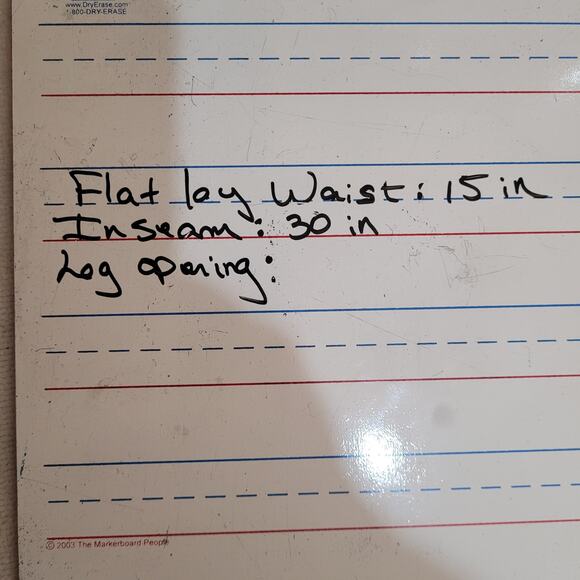 www.DryErase.com
1-800-DRY-ERASE
Flat lay Waist: 15 in
Inseam: 30 in
Leg opening:
© 2003 The Markerboard People